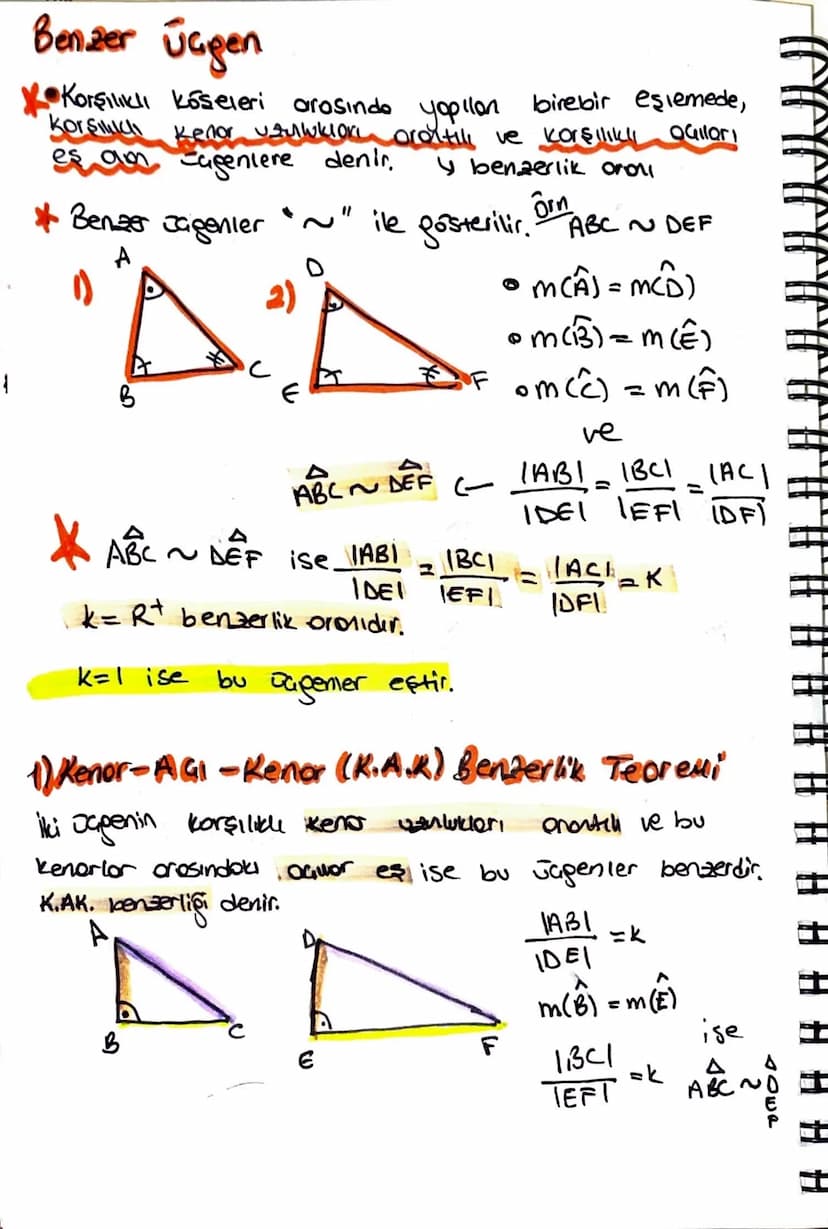 Benzer Üçgen
* • Karşılıklı köşeleri arasında yapılan birebir eşlemede,
karşılıklı kenar uzunlukları orantılı ve karşılıklı açıları
eş olan üçgenlere denir. ↳ benzerlik oranı
* Benzer üçgenler "~" ile gösterilir. Örn ABC ~ DEF
1) A B C
2) D E F
• m(Â) = m(D̂)
• m(B̂) = m(Ê)
• m(Ĉ) = m(F̂)
ve
ABC ~ DEF ← |AB|/|DE| = |BC|/|EF| = |AC|/|DF|
* ABC ~ DEF ise |AB|/|DE| = |BC|/|EF| = |AC|/|DF| = k
k = R⁺ benzerlik oranıdır.
k=1 ise bu üçgenler eştir.
1) Kenar-Açı-Kenar (K.A.K) Benzerlik Teoremi
İki üçgenin karşılıklı kenar uzunlukları orantılı ve bu
kenarlar arasındaki açılar eş ise bu üçgenler benzerdir.
K.A.K. benzerliği denir.
A B C
D E F
|AB|/|DE| = k
m(B̂) = m(Ê)
ise
|BC|/|EF| = k ABC ~ DEF